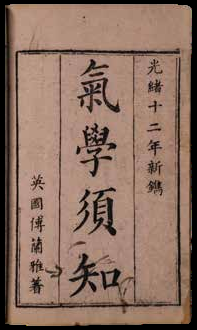 光緒十二年新鐫
氣學須知
英國傅蘭雅著